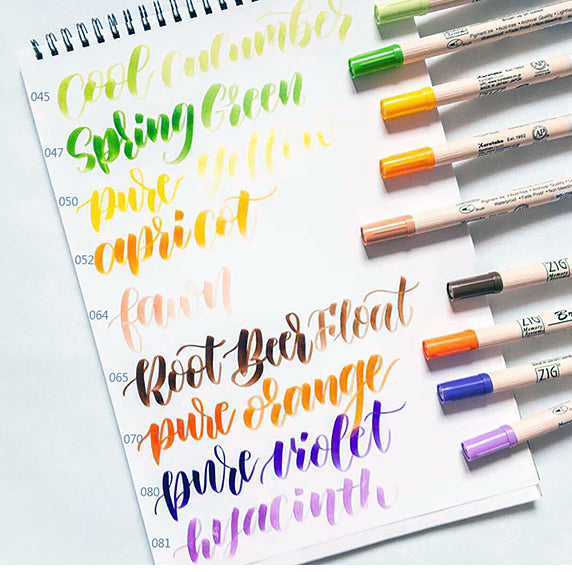 045 cool cucumber
047 Spring Green
050 pure yellow
052 apricot
064 fawn
065 Root Beer Float
070 pure orange
080 pure violet
081 hyacinth
Kuretake Est. 1902
Kuretake Est. 1902
Waterproof • Fade Proof
ZIG
ZIG
ZIG